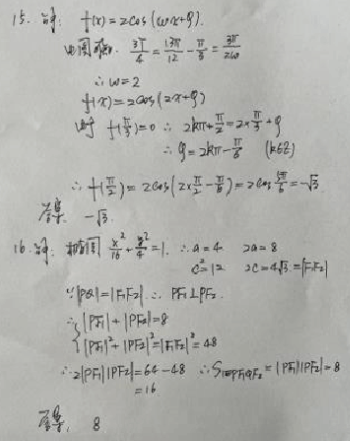 15. 解: f(x)=2cos(ωx+φ).
由图知. 3T/4 = 13π/12 - π/3 = 3π/2ω
∴ ω=2
f(x)=2cos(2x+φ)
由于 f(π/3)=0 ∴ 2kπ+π/2=2×π/3+φ
∴ φ=2kπ-π/6 (k∈Z)
∴ f(π/2)=2cos(2×π/2-π/6)=2cos 5π/6=-√3
答案. -√3.
16. 解: 椭圆 x²/16+y²/4=1. ∴ a=4 2a=8
c²=12 2c=4√3=|F₁F₂|
∵ |PQ|=|F₁F₂| ∴ PF₁⊥PF₂
∴ { |PF₁|+|PF₂|=8
|PF₁|²+|PF₂|²=|F₁F₂|²=48
∴ 2|PF₁||PF₂|=64-48 ∴ S四PF₁QF₂=|PF₁||PF₂|=8
=16
答案. 8